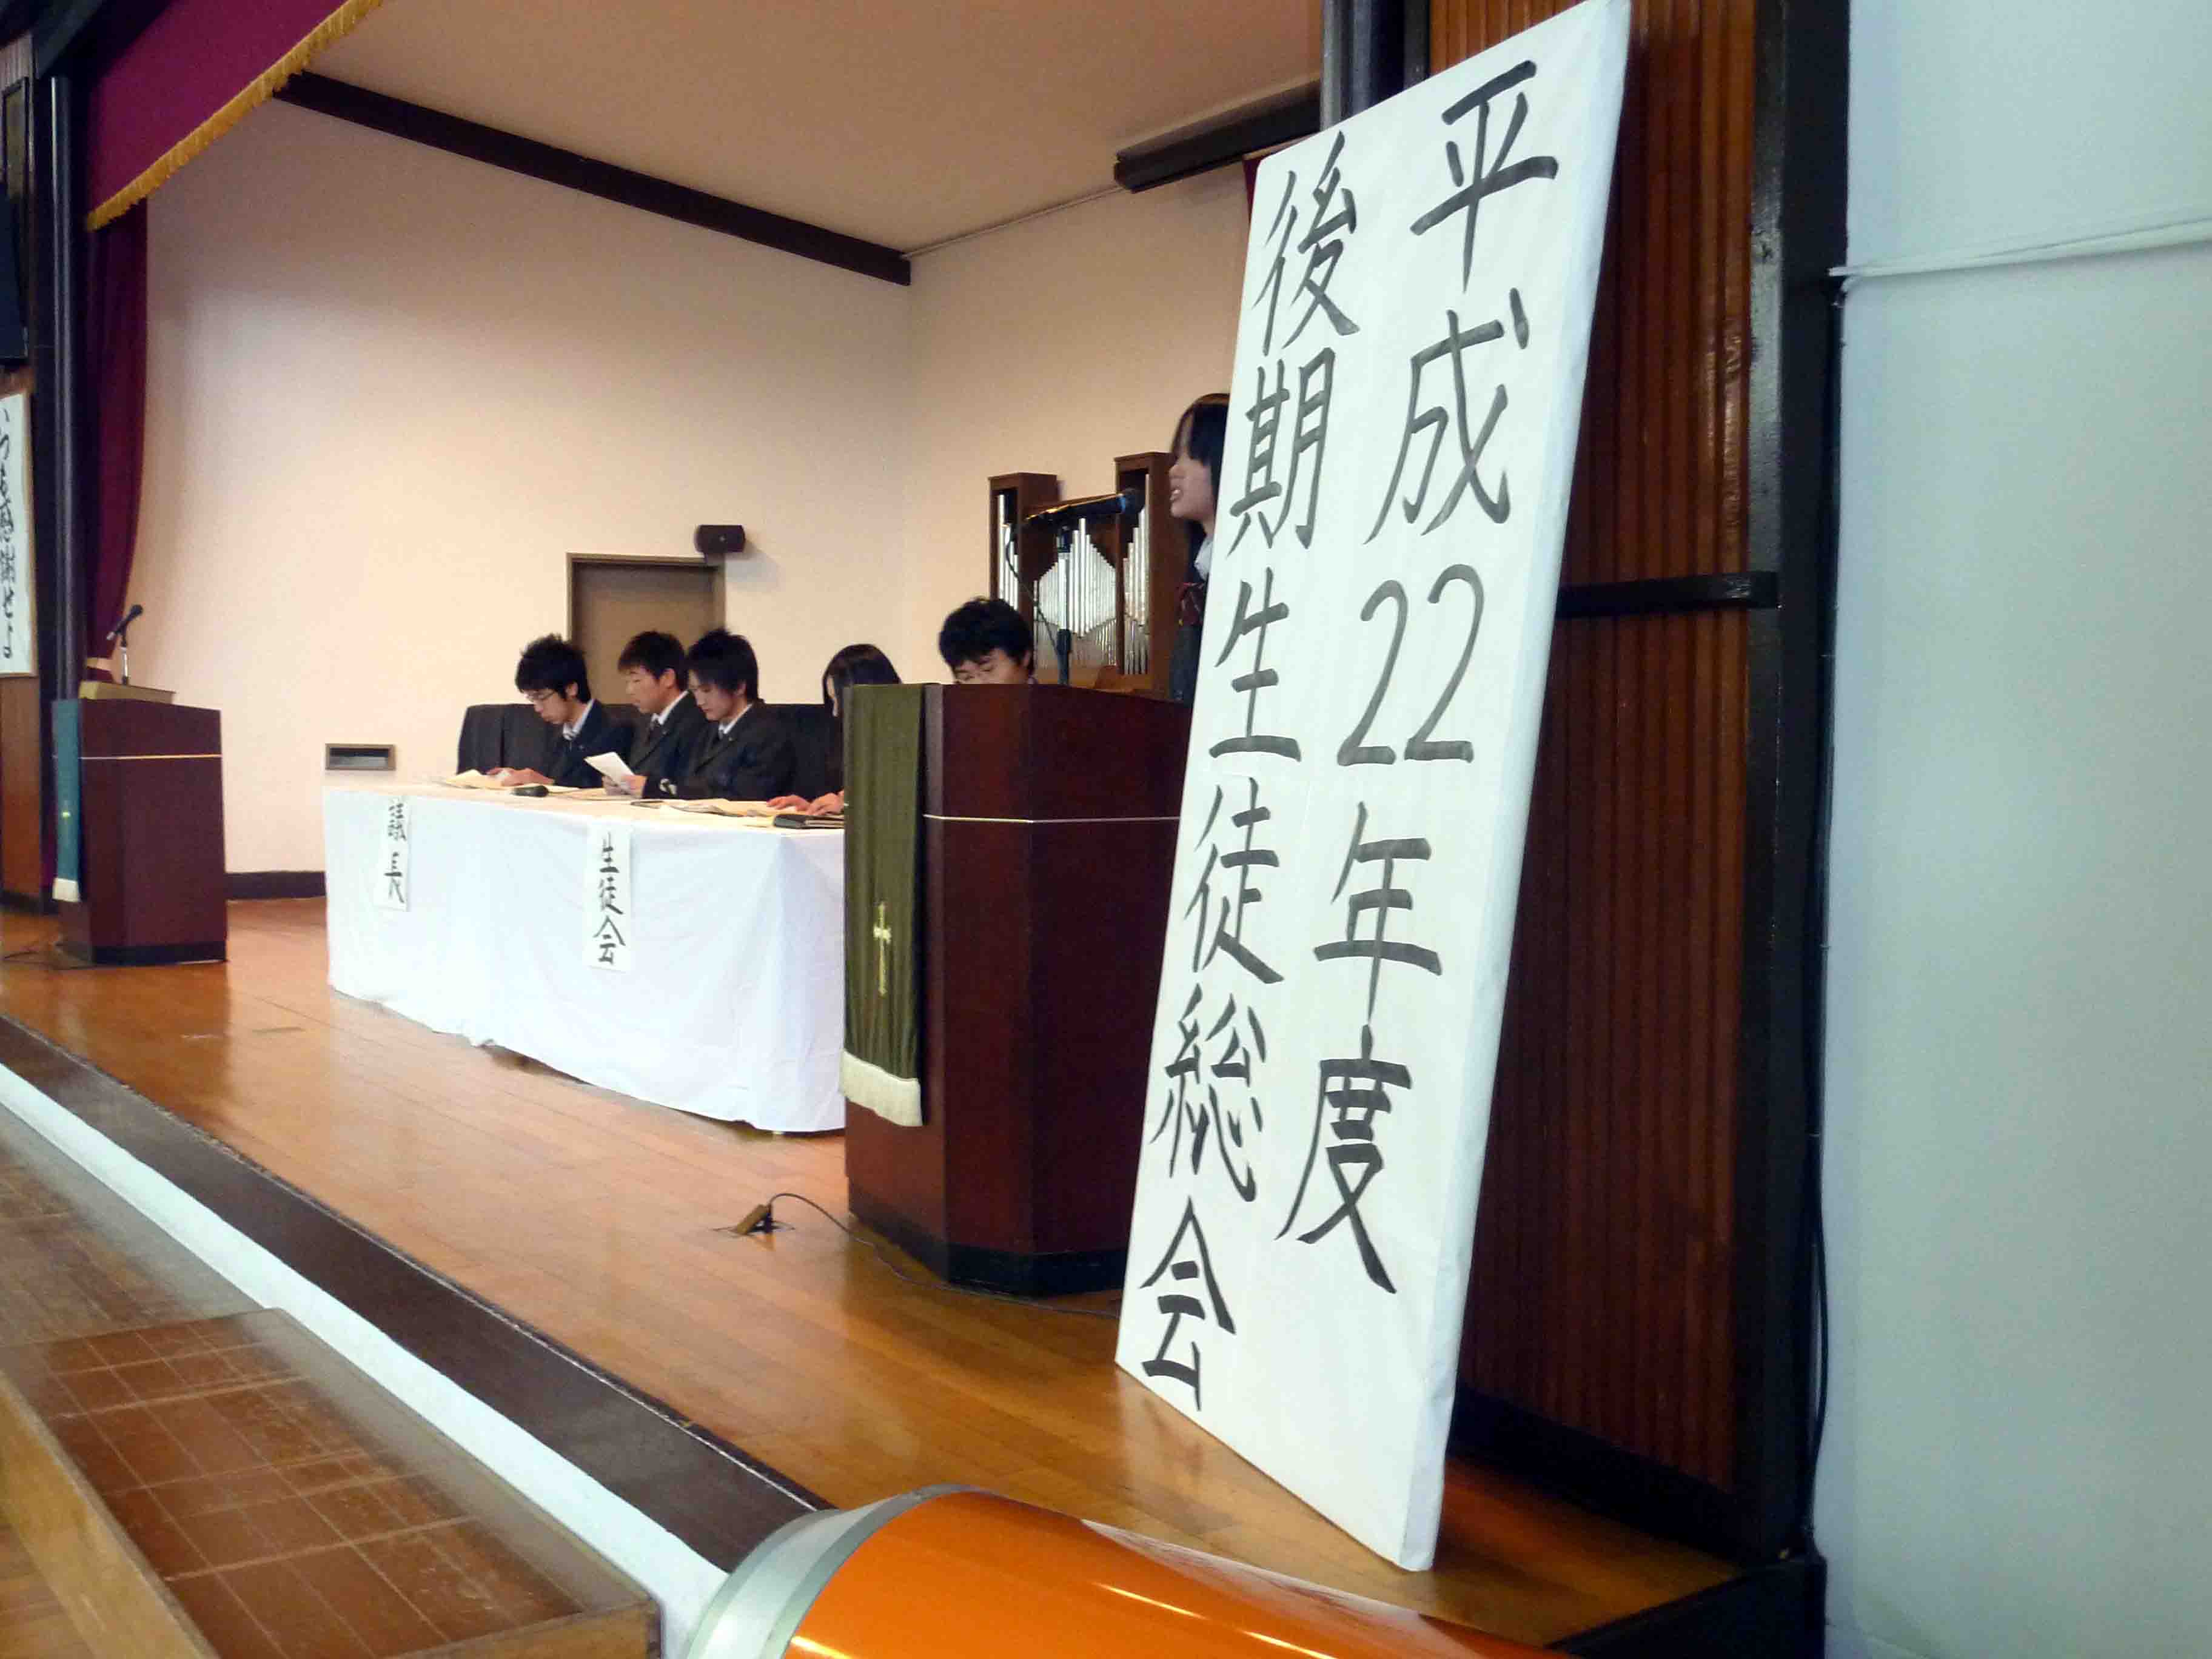 平成22年度
後期生徒総会
議長
生徒会
いつも感謝せよ